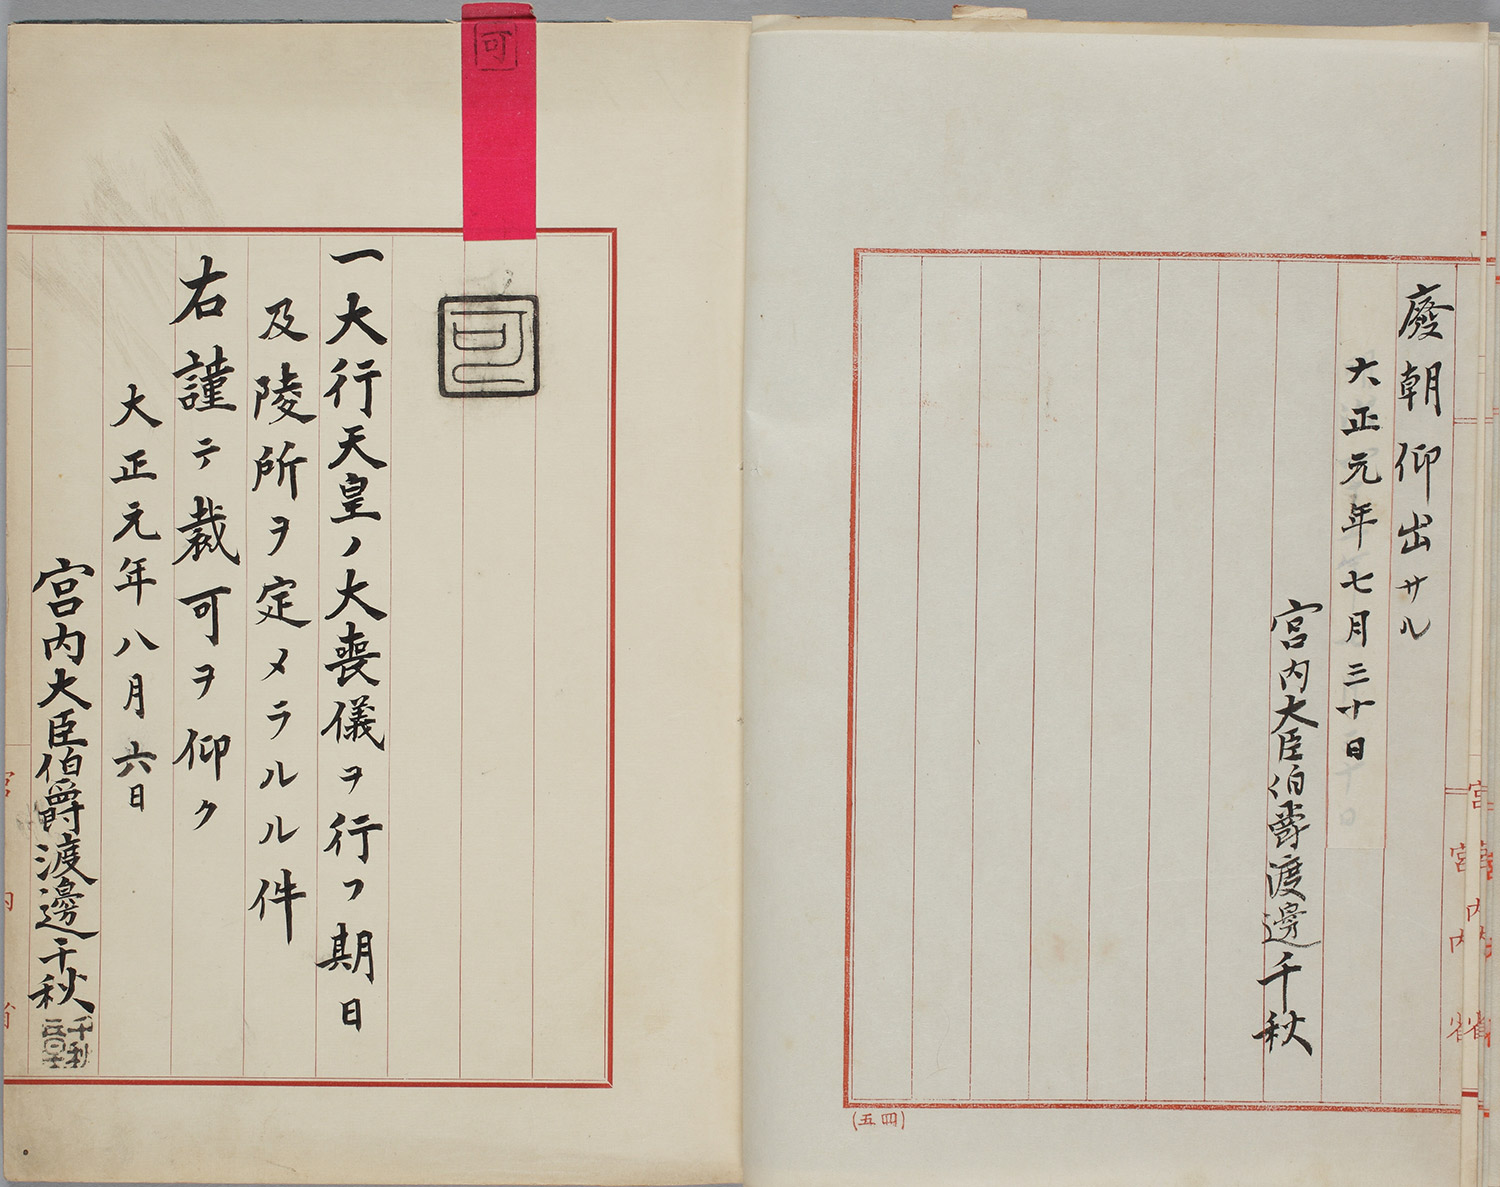 廢朝仰出サル
大正元年七月三十日
宮内大臣伯爵渡邊千秋
(五四)
宮内省
可
可
一大行天皇ノ大喪儀ヲ行フ期日
及陵所ヲ定メラルル件
右謹テ裁可ヲ仰ク
大正元年八月六日
宮内大臣伯爵渡邊千秋